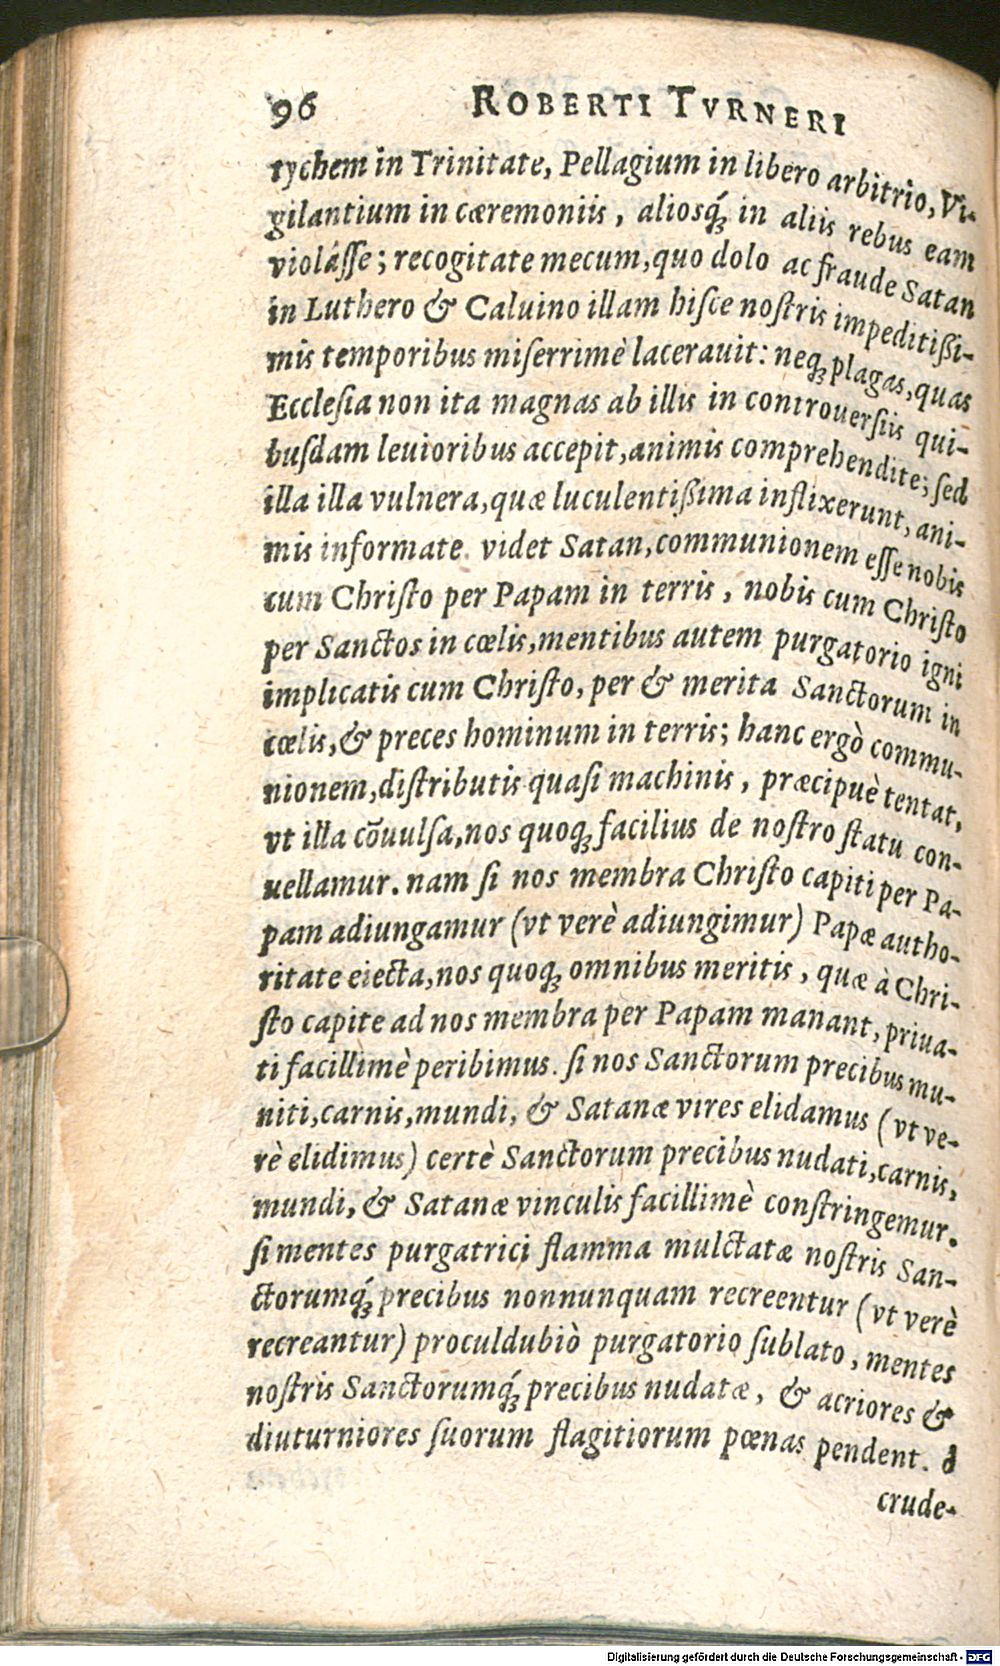 96 ROBERTI TVRNERI
tychem in Trinitate, Pellagium in libero arbitrio, Vi-
gilantium in cæremoniis, aliosq́; in aliis rebus eam
violásse; recogitate mecum, quo dolo ac fraude Satan
in Luthero & Caluino illam hisce nostris impeditißi-
mis temporibus miserrimè lacerauit: neq; plagas, quas
Ecclesia non ita magnas ab illis in controuersiis qui-
busdam leuioribus accepit, animis comprehendite; sed
illa illa vulnera, quæ luculentißima inflixerunt, ani-
mis informate. videt Satan, communionem esse nobis
cum Christo per Papam in terris, nobis cum Christo
per Sanctos in cœlis, mentibus autem purgatorio igni
implicatis cum Christo, per & merita Sanctorum in
cœlis, & preces hominum in terris; hanc ergò commu-
nionem, distributis quasi machinis, præcipuè tentat,
vt illa cõuulsa, nos quoq; facilius de nostro statu con-
uellamur. nam si nos membra Christo capiti per Pa-
pam adiungamur (vt verè adiungimur) Papæ autho-
ritate eiecta, nos quoq; omnibus meritis, quæ à Chri-
sto capite ad nos membra per Papam manant, priua-
ti facillimè peribimus. si nos Sanctorum precibus mu-
niti, carnis, mundi, & Satanæ vires elidamus (vt ve-
rè elidimus) certè Sanctorum precibus nudati, carnis,
mundi, & Satanæ vinculis facillimè constringemur.
si mentes purgatrici flamma mulctatæ nostris San-
ctorumq́; precibus nonnunquam recreentur (vt verè
recreantur) proculdubiò purgatorio sublato, mentes
nostris Sanctorumq́; precibus nudatæ, & acriores &
diuturniores suorum flagitiorum pœnas pendent. ô
crude-
Digitalisierung gefördert durch die Deutsche Forschungsgemeinschaft - DFG